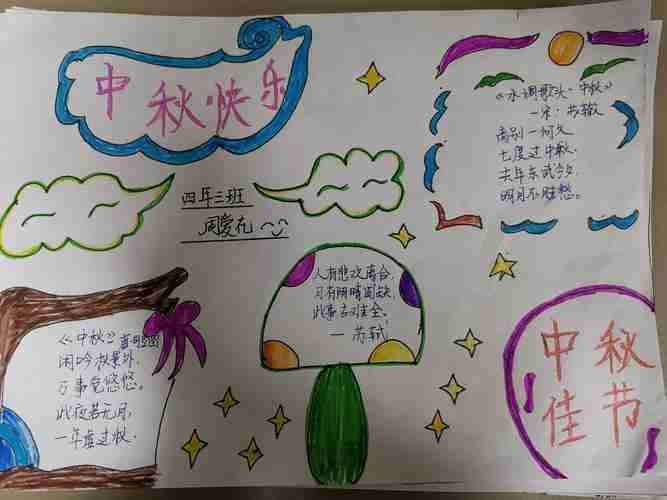 中秋快乐
四年三班
周爱
《水调歌头·中秋》
一宋:苏辙
离别一何久
七度过中秋.
去年东武今夕,
明月不胜愁。
人有悲欢离合,
月有阴晴圆缺,
此事古难全。
—苏轼
《中秋》司空图
闲吟秋景外,
万事觉悠悠。
此夜若无月,
一年虚过秋.
中秋
佳节